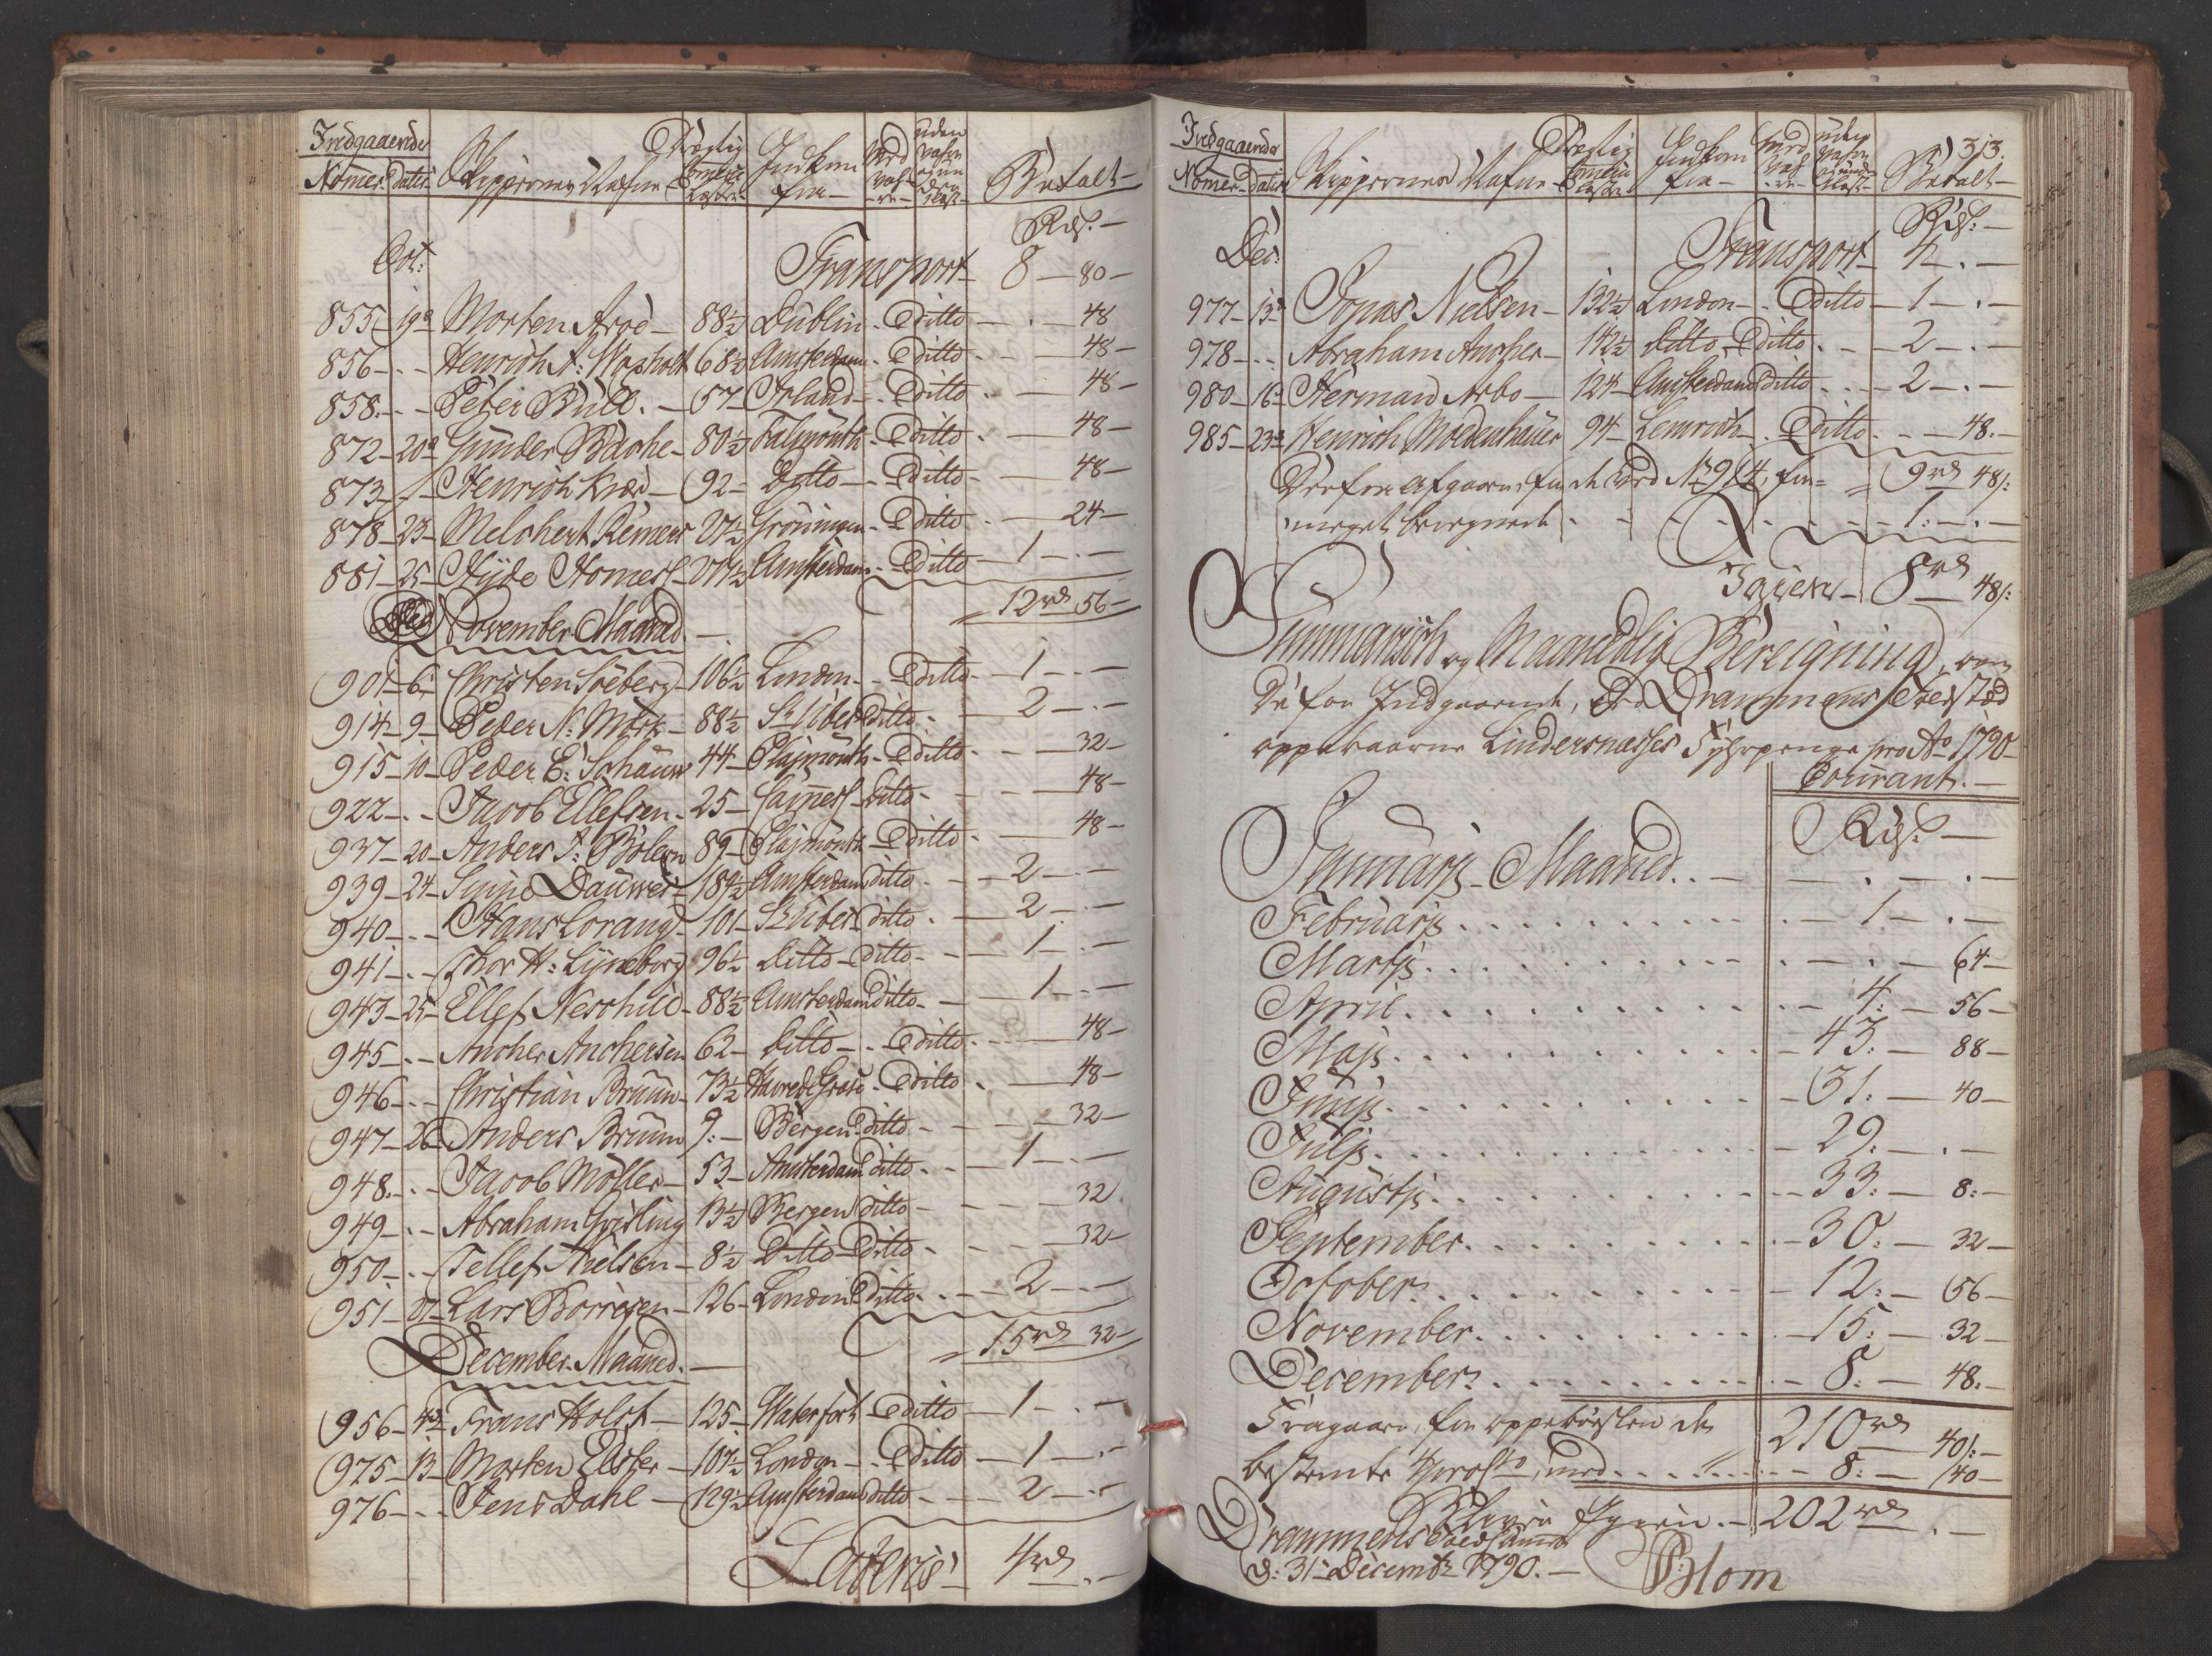 Indgaaende
Nomer Dato Skippernes Nafne Drægtig Comerce Læster Indkom fra Med vah- re uden vahre og un- der Last Betalt
Rd ß
Oct: Transport 8 — 80 —
855 — 19de Morten Aroe — 88½ Dublin — Ditto — . — 48
856 — . — Henrich A: — 68½ Amsterdam — Ditto — 48 —
858 — . — Peter Bull. — 57 — Irland — Ditto — 48 —
872 — 20de Gunder Bache — 80½ Falmouth — Ditto — 48 —
873 — . — Henrich Kiær — 92 — Ditto — Ditto — 48 —
878 — 23 — Melchert Remers 27½ Grøningen — Ditto — 24 —
881 — 25 — Hÿbe Homes — Amsterdam — Ditto — 1 — . —
12 rd 56 —
November Maaned —
901 — 6 — Christen Söeberg — 106½ London — Ditto — 1 — . —
914 — 9 — Peder N: Mörk — 88½ St: Ubes Ditto — 2 — . —
915 — 10 — Peder E: Schauw 44 — Plÿmouth — Ditto — 32 —
922 — . — Jacob Ellefsen — 25 — — Ditto — 48 —
937 — 20 — Anders — 89 — Plÿmouth — Ditto — 48 —
939 — 24 — Dauwes — 189½ Amsterdam Ditto — 2 — . —
940 — . — Hans Lorang — 101 — St Ubes Ditto — 2 — . —
941 — . — Thor H: Lÿneborg 96½ Ditto — Ditto — 1 — . —
943 — 25 — Ellef — 88½ Amsterdam Ditto — 1 — . —
945 — . — Ancher Anchersen 62 — Ditto — Ditto — 48 —
946 — . — Christian Bruun — 73½ Havre de Grace — Ditto — 48 —
947 — 26 — Anders Bruun 9: — Bergen Ditto — 32 —
948 — . — Jacob Möller — 53 — Amsterdam Ditto — 1 — . —
949 — . — Abraham Grisling 13½ Bergen Ditto — 32
950 — . — Tellef Nielsen — 8½ Ditto — Ditto — 32 —
951 — 27 — Lars Borresen — 126 — London Ditto — 2 — . —
15 rd 32 —
December Maaned. —
956 — 4de Frans Holst — 125 — Waterfort — Ditto — 1 — . —
975 — 13 — Morten Elster — 107½ London — Ditto — 1 — . —
976 — . — Jens Dahl — 129½ Amsterdam Ditto — 2 — . —
Lateris 4 rd . —
313.
Indgaaende
Nomer Dato Skippernes Nafne Drægtig Comerce Læster Indkom fra Med vah- re uden vahre og under Last Betalt —
Rd ß —
Dec: Transport — 4 — . —
977 — 13de Jonas Nielsen — 132½ London — Ditto — 1 — . —
978 — . . Abraham Ancher — 142½ Ditto — Ditto — 2 — . —
980 — 16 — Herman Arbo — 124 — Amsterdam Ditto — 2 — . —
985 — 23de Henrich Moldenhauer 94 — Lemvich — Ditto — 48. —
Derfra afgaaer N 914, for 9 rd 48 ß:
meget beregnede — 1: — . —
Igien — 8 rd 48 ß:
Summarisk og Maanedlig Bereigning, over
De for Indgaaende, ved Drammens Toldsted
oppebaarne Lindersnæsses Fyhrpenge pro Ao 1790 —
Courant. —
Rd ß —
Januarj Maaned. . — . — . —
Februarj — 1 — . —
Martj — . — 64 —
April — 4: — 56 —
Maj — 43: — 88 —
Junj — 31: — 40 —
Julj — 29: — . —
Augustj — 33: — 8: —
September — 30: — 32 —
October — 12: — 56 —
November — 15: — 32 —
December — 8: — 48. —
Fragaaer, for oppebørslen de 210 rd 40 ß: —
bestemte 4 proCto, med — 8: — 40 —
Bliver Igien — 202 rd . —
Drammens Toldkammer
d: 31 Decembr 1790. —
Blom